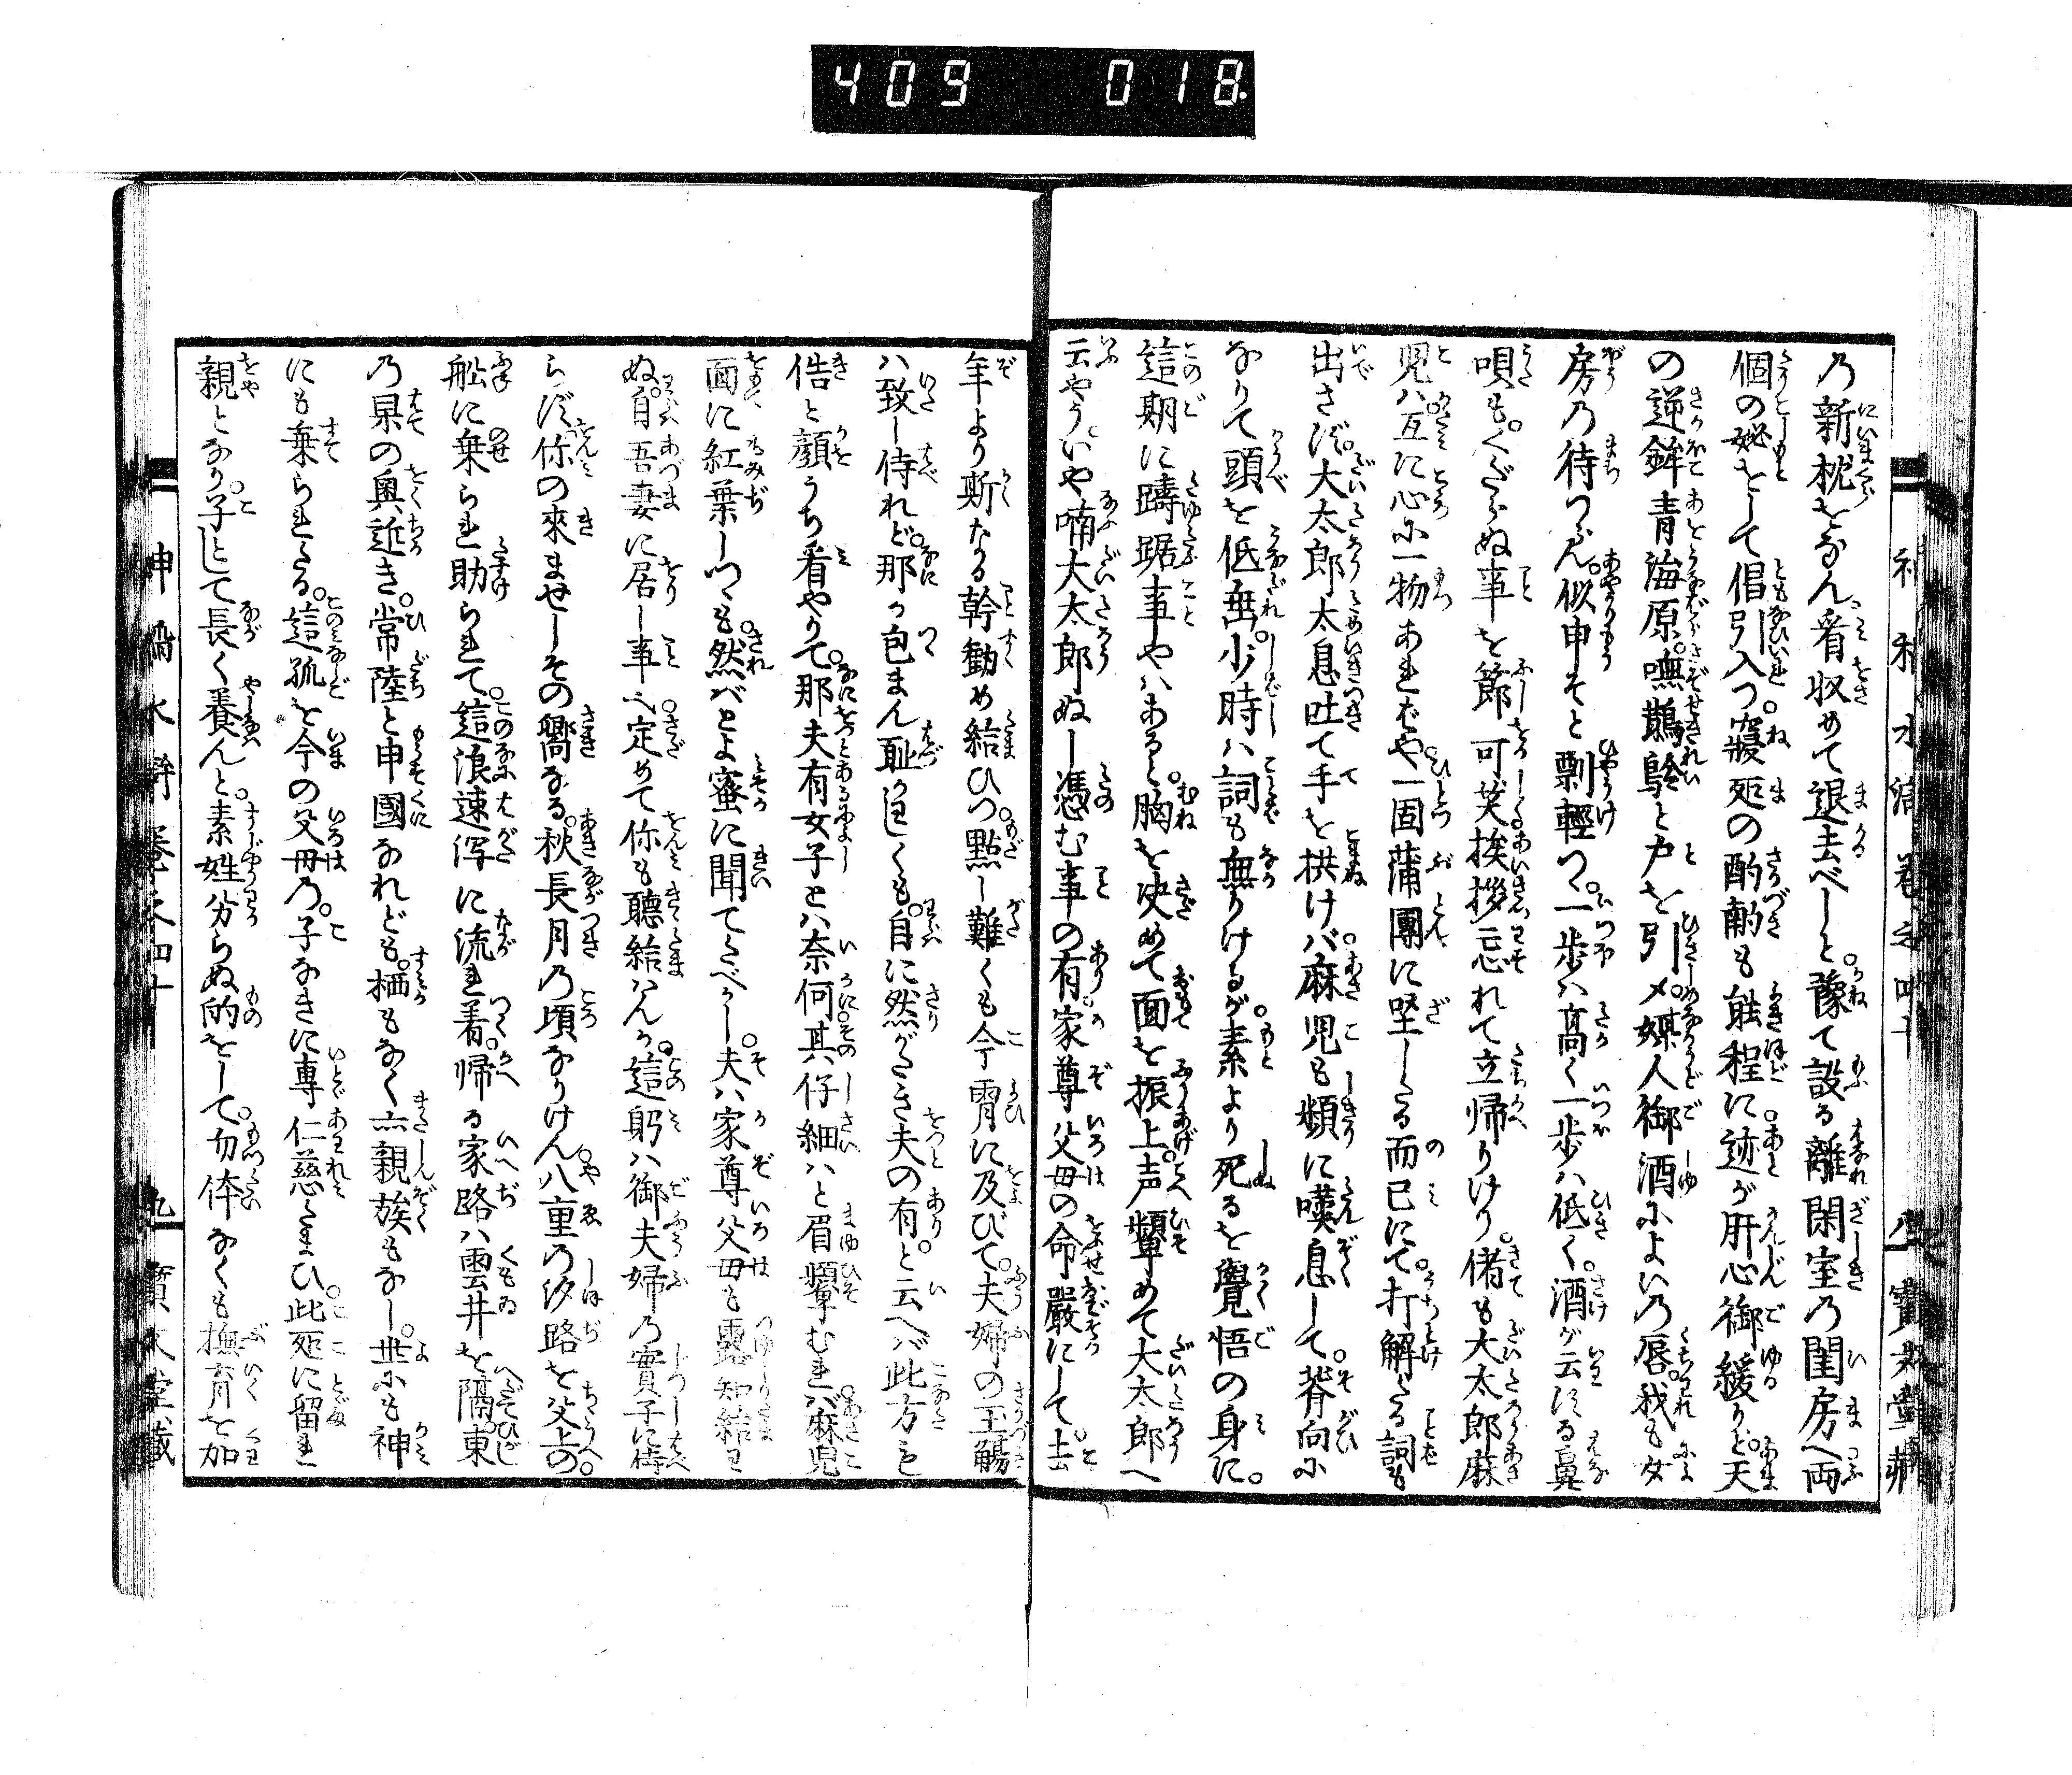 409 018
乃新枕をなん看収めて退去べしと。豫て設る離閑室の閨房へ両
個の姒をして倡引入つ。寝処の酌酬も能程に。迹が肝心御緩りと。天
の逆鉾青海原。嘸鶺鴒と戸を引〆。媒人御酒によいの唇。我も女
房の待つらん。似申そと剽軽つゝ。一歩ハ高く一歩ハ低く。酒が云する鼻
唄も。くだらぬ事を節可笑挨拶忘れて立帰りけり。偖も大太郎麻
児ハ。互に心に一物あればや。一固蒲團に坐したる而已にて。打解たる詞も
出さず。大太郎太息吐て手を拱けバ。麻児も頻に嘆息して。背向に
なりて頭を低垂。少時ハ詞も無りけるが。素より死るを覺悟の身に。
這期に躊踞事やハあると。胸を决めて面を振上。声顰めて大太郎へ
云やう。いや喃大太郎ぬし憑む事の有。家尊父母の命嚴にして。去
年より斯なる幹勧め給ひつ。點し難くも今霄に及びて。夫婦の玉觴
ハ致し侍れど。那か包まん耻かしくも。自に然がたき夫の有。と云へバ此方も
佶と顔うち看やりて。那夫有女子とハ奈何。其仔細ハと眉顰むれバ。麻児
面に紅葉しつゝも。然バとよ蜜に聞てたべかし。夫ハ家尊父母も露知給は
ぬ。自吾妻に居し事ハ。定めて你も聽給はんが。這躬ハ御夫婦の實子に侍
らず。你の來ませしその嚮なる。秋長月の頃なりけん。八重の汐路を父上の。
舩に乗られ助られて。這浪速潟に流れ着。帰る家路ハ雲井を隔。東
の果の奥近き。常陸と申國なれども。栖もなく亦親族もなし。世にも神
にも棄られたる。這孤を今の父母の。子なきに専仁慈たまひ。此処に留れ
親となり。子として長く養んと。素姓分らぬ的をして。勿体なくも撫育を加
神稲水滸 巻之四十 九 寶文堂藏